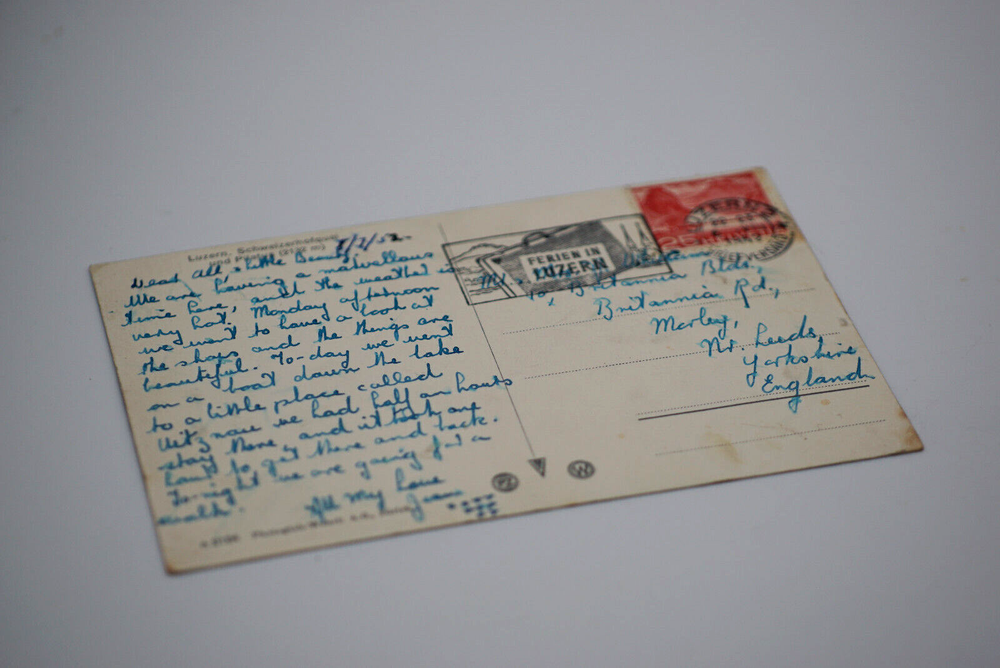 Luzern, Schweizerhofquai
und Pilatus (2132 m)
Dear All, & Little Beauty,
We are having a marvellous
time here, and the weather is
very hot. Monday afternoon
we went to have a look at
the shops and the things are
beautiful. To-day we went
on a boat down the lake
to a little place called
we had half an hours
stay there, and it took one
hour to get there and back.
To-night we are going for a
walk.
All My Love
Jean
FERIEN IN
LUZERN
LUZERN
25
HELVETIA
Britannia Blds,
Britannia Rd.,
Morley,
Nr. Leeds,
Yorkshire,
England